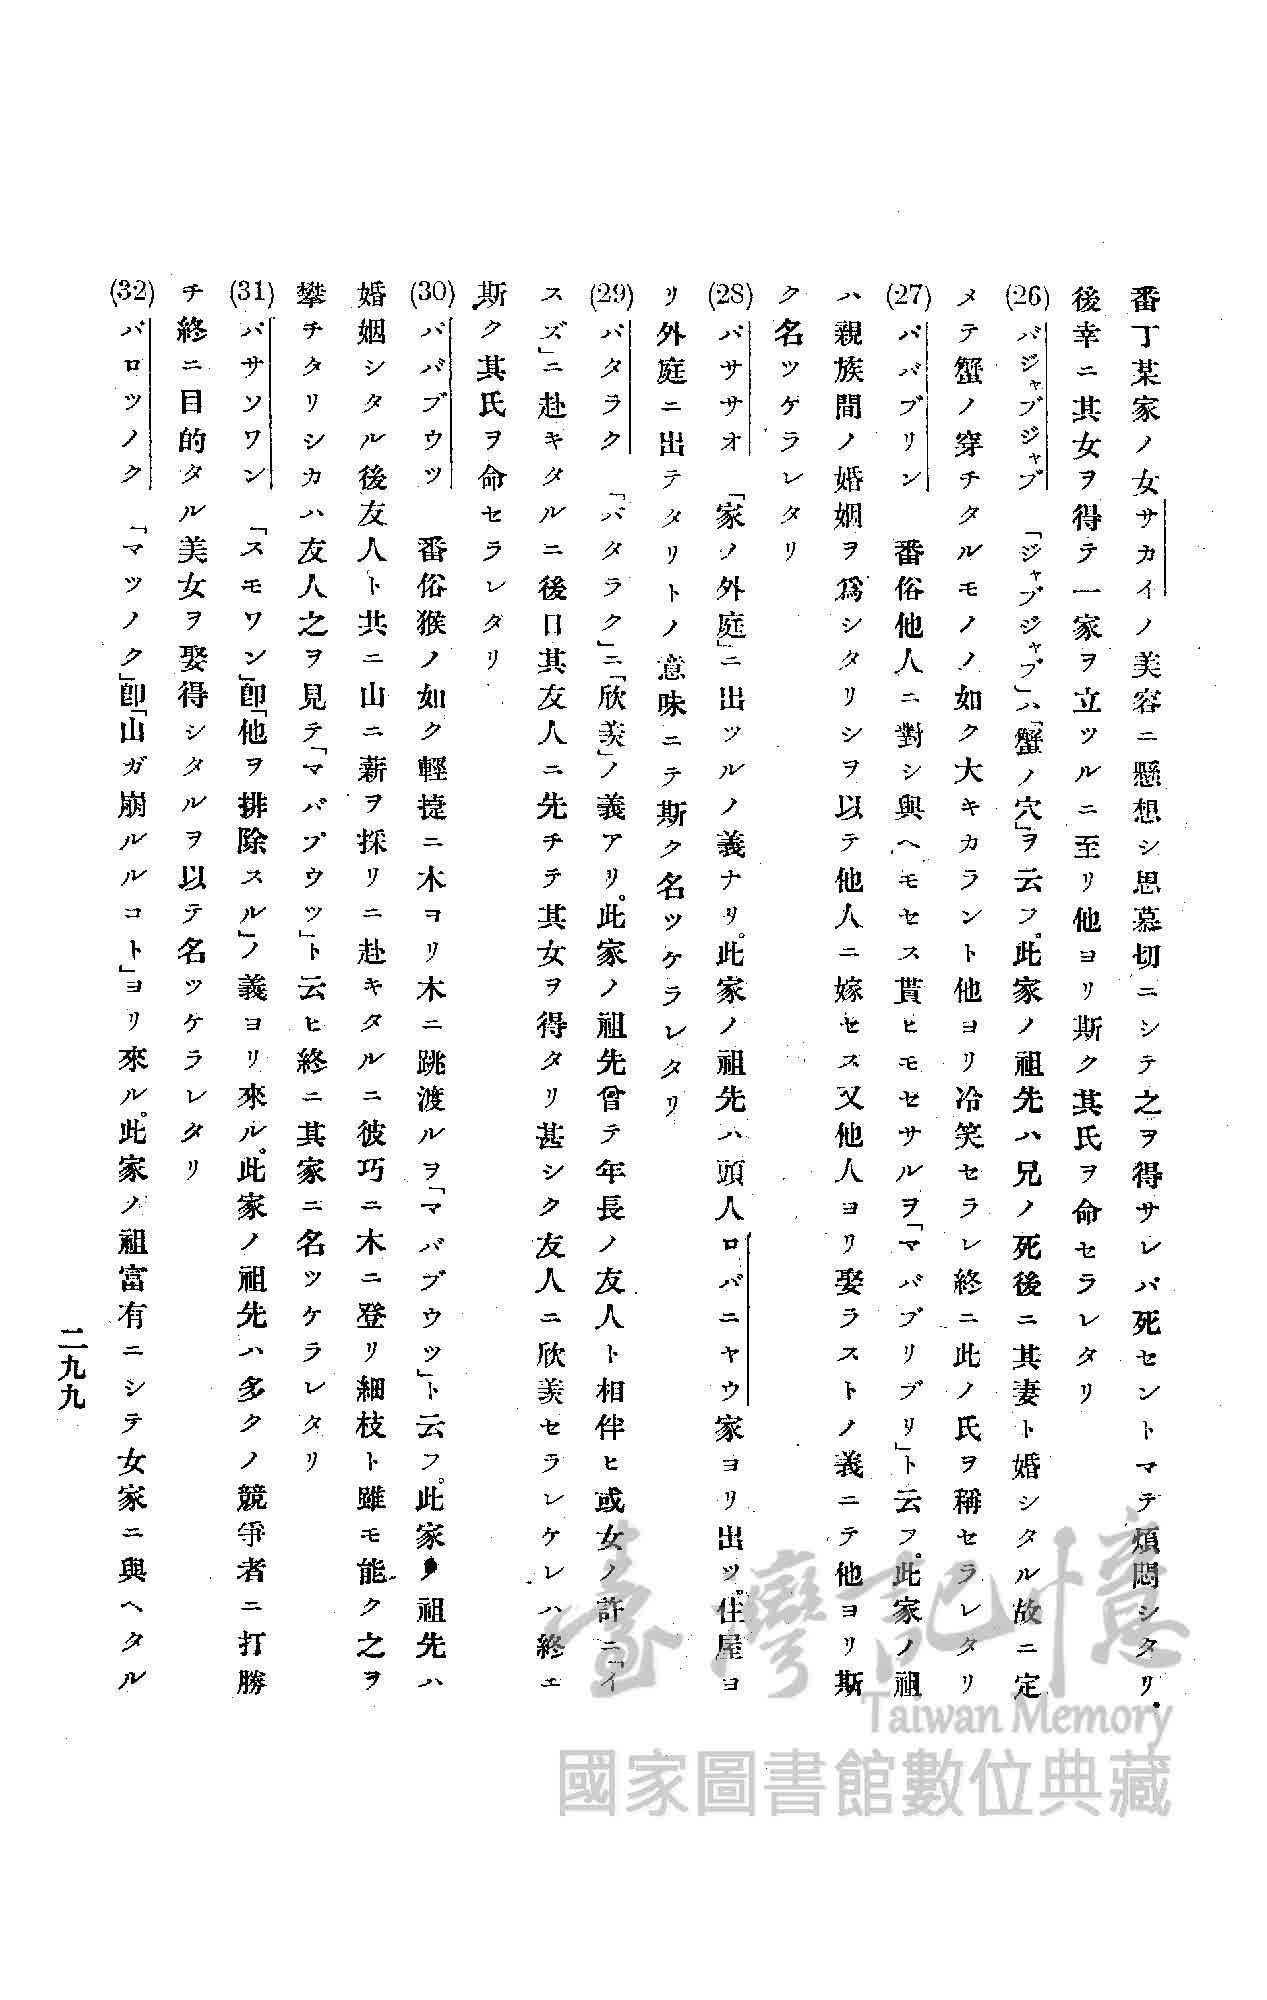 番丁某家ノ女サカイノ美容ニ懸想シ思慕切ニシテ之ヲ得サレバ死セントマテ煩悶シタリ
後幸ニ其女ヲ得テ一家ヲ立ツルニ至リ他ヨリ斯ク其氏ヲ命セラレタリ
(26) バジャブジャブ 「ジャブジャブ」ハ「蟹ノ穴」ヲ云フ。此家ノ祖先ハ兄ノ死後ニ其妻ト婚シタル故ニ定
メテ蟹ノ穿チタルモノノ如ク大キカラント他ヨリ冷笑セラレ終ニ此ノ氏ヲ稱セラレタリ
(27) ババブリン 番俗他人ニ對シ與ヘモセス貰ヒモセサルヲ「マバブリブリ」ト云フ。此家ノ祖
ハ親族間ノ婚姻ヲ爲シタリシヲ以テ他人ニ嫁セス又他人ヨリ娶ラストノ義ニテ他ヨリ斯
ク名ツケラレタリ
(28) バササオ 「家ノ外庭」ニ出ツルノ義ナリ。此家ノ祖先ハ頭人ロバニヤウ家ヨリ出ツ。住屋ヨ
リ外庭ニ出テタリトノ意味ニテ斯ク名ツケラレタリ
(29) バタラク 「バタラク」ニ「欣羨」ノ義アリ。此家ノ祖先曾テ年長ノ友人ト相伴ヒ或女ノ許ニ「イ
スズ」ニ赴キタルニ後日其友人ニ先チテ其女ヲ得タリ甚シク友人ニ欣羨セラレケレハ終エ
斯ク其氏ヲ命セラレダリ
(30) ババブウツ 番俗猴ノ如ク輕捷ニ木ヨリ木ニ跳渡ルヲ「マバブウツ」ト云フ。此家ノ祖先ハ
婚姻シタル後友人ト共ニ山ニ薪ヲ採リニ赴キタルニ彼巧ニ木ニ登リ細枝ト雖モ能ク之ヲ
攀チタリシカハ友人之ヲ見テ「マバブウツ」ト云ヒ終ニ其家ニ名ツケラレタリ
(31) バサソワン 「スモワン」卽「他ヲ排除スル」ノ義ヨリ來ル。此家ノ祖先ハ多クノ競爭者ニ打勝
チ終ニ目的タル美女ヲ娶得シタルヲ以テ名ツケラレタリ
(32) バロツノク 「マツノク」卽「山ガ崩ルルコト」ヨリ來ル。此家ノ祖富有ニシテ女家ニ與ヘタル
二九九
臺灣記憶
Taiwan Memory
國家圖書館數位典藏